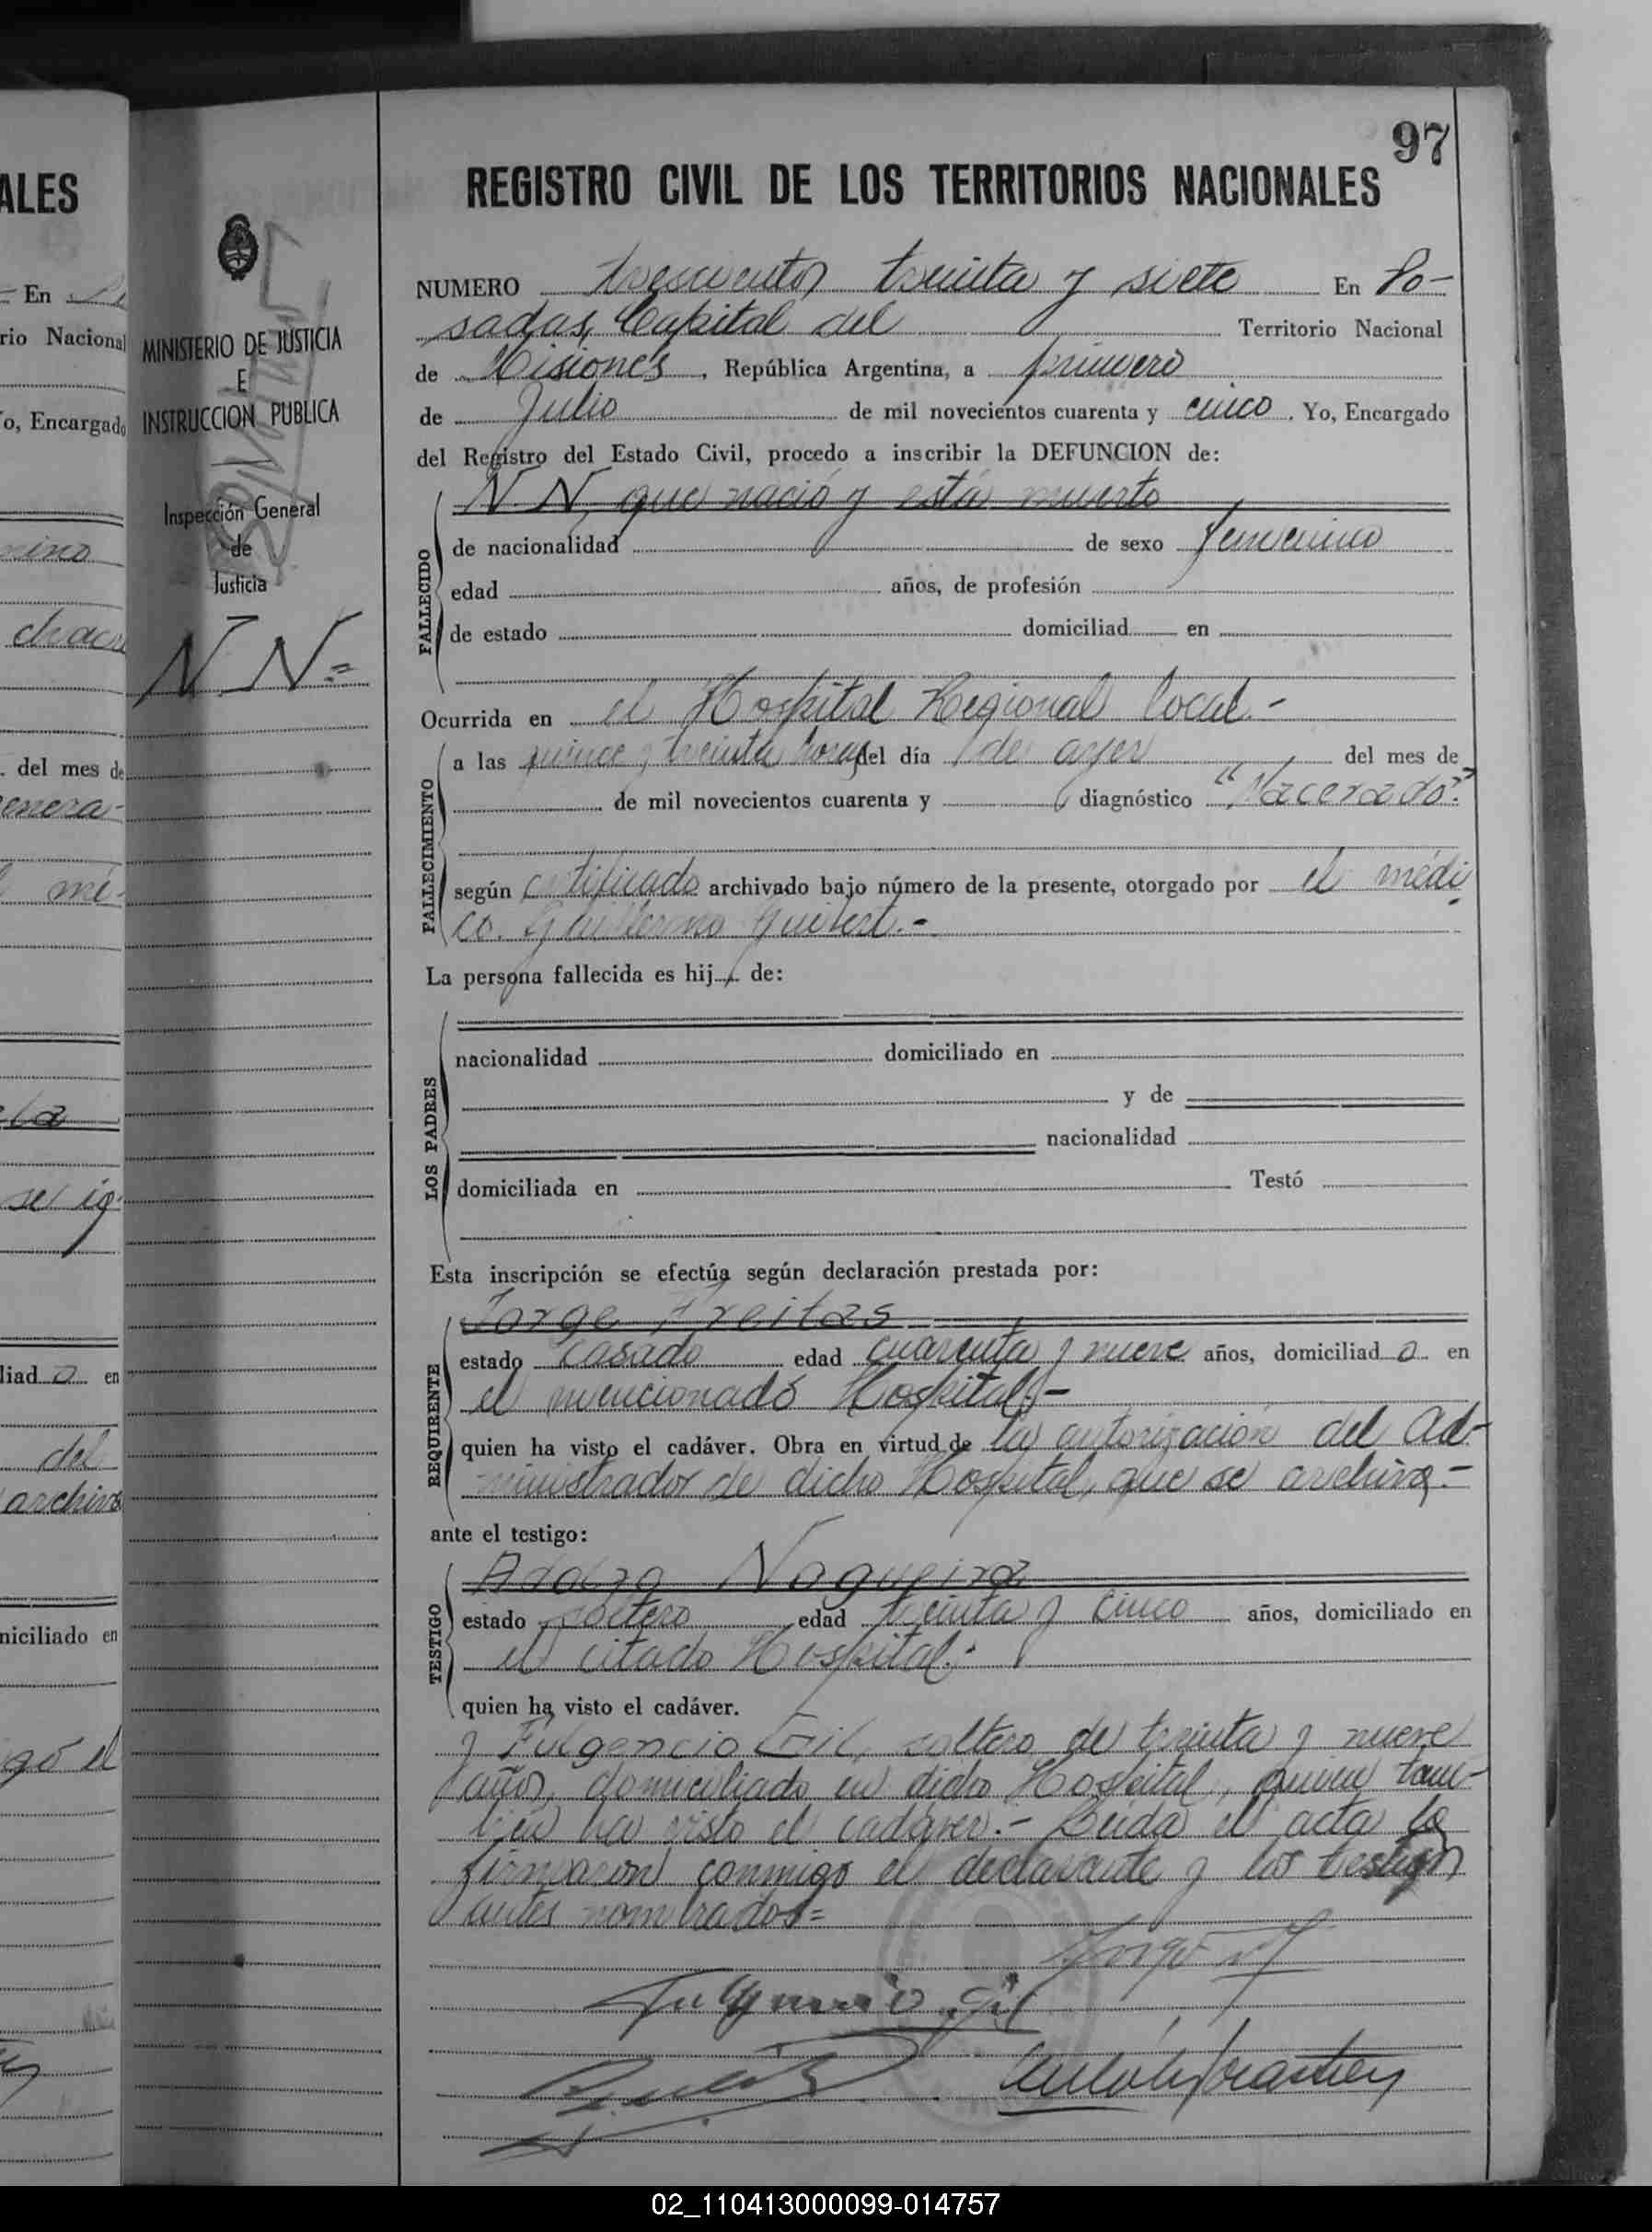 97
ALES
REGISTRO CIVIL DE LOS TERRITORIOS NACIONALES
En
rio Nacional
o, Encargado
mino
chacr
del mes de
mé-
se ig-
liad o en
del
archiva
niciliado en
gó el
MINISTERIO DE JUSTICIA
E
INSTRUCCION PUBLICA
Inspección General
de
Justicia
N N=
NUMERO trescientos treinta y siete En Po-
sadas, Capital del Territorio Nacional
de Misiones, República Argentina, a primero
de Julio de mil novecientos cuarenta y cinco. Yo, Encargado
del Registro del Estado Civil, procedo a inscribir la DEFUNCION de:
N. N, que nació y está muerto
FALLECIDO
de nacionalidad de sexo femenino
edad años, de profesión
de estado domiciliad en
Ocurrida en el Hospital Regional local.-
FALLECIMIENTO
a las quince y treinta horas del día de ayer del mes de
de mil novecientos cuarenta y diagnóstico "Macerado".
según certificado archivado bajo número de la presente, otorgado por el médi
co. Guillermo
La persona fallecida es hij de:
LOS PADRES
nacionalidad domiciliado en
y de
nacionalidad
domiciliada en Testó
Esta inscripción se efectúa según declaración prestada por:
REQUIRENTE
Jorge Freitas
estado casado edad cuarenta y nueve años, domiciliad o en
el mencionado Hospital.-
quien ha visto el cadáver. Obra en virtud de la autorización del Ad-
ministrador de dicho Hospital, que se archiva.-
ante el testigo:
TESTIGO
Nogueira
estado soltero edad treinta y cinco años, domiciliado en
el citado Hospital.-
quien ha visto el cadáver.
y Fulgencio Gil, soltero de treinta y nueve
años, domiciliado en dicho Hospital, quien tam-
bien ha visto el cadáver.- Leida el acta la
firmaron conmigo el declarante y los testigos
antes nombrados=
Fulgencio Gil
02_110413000099-014757